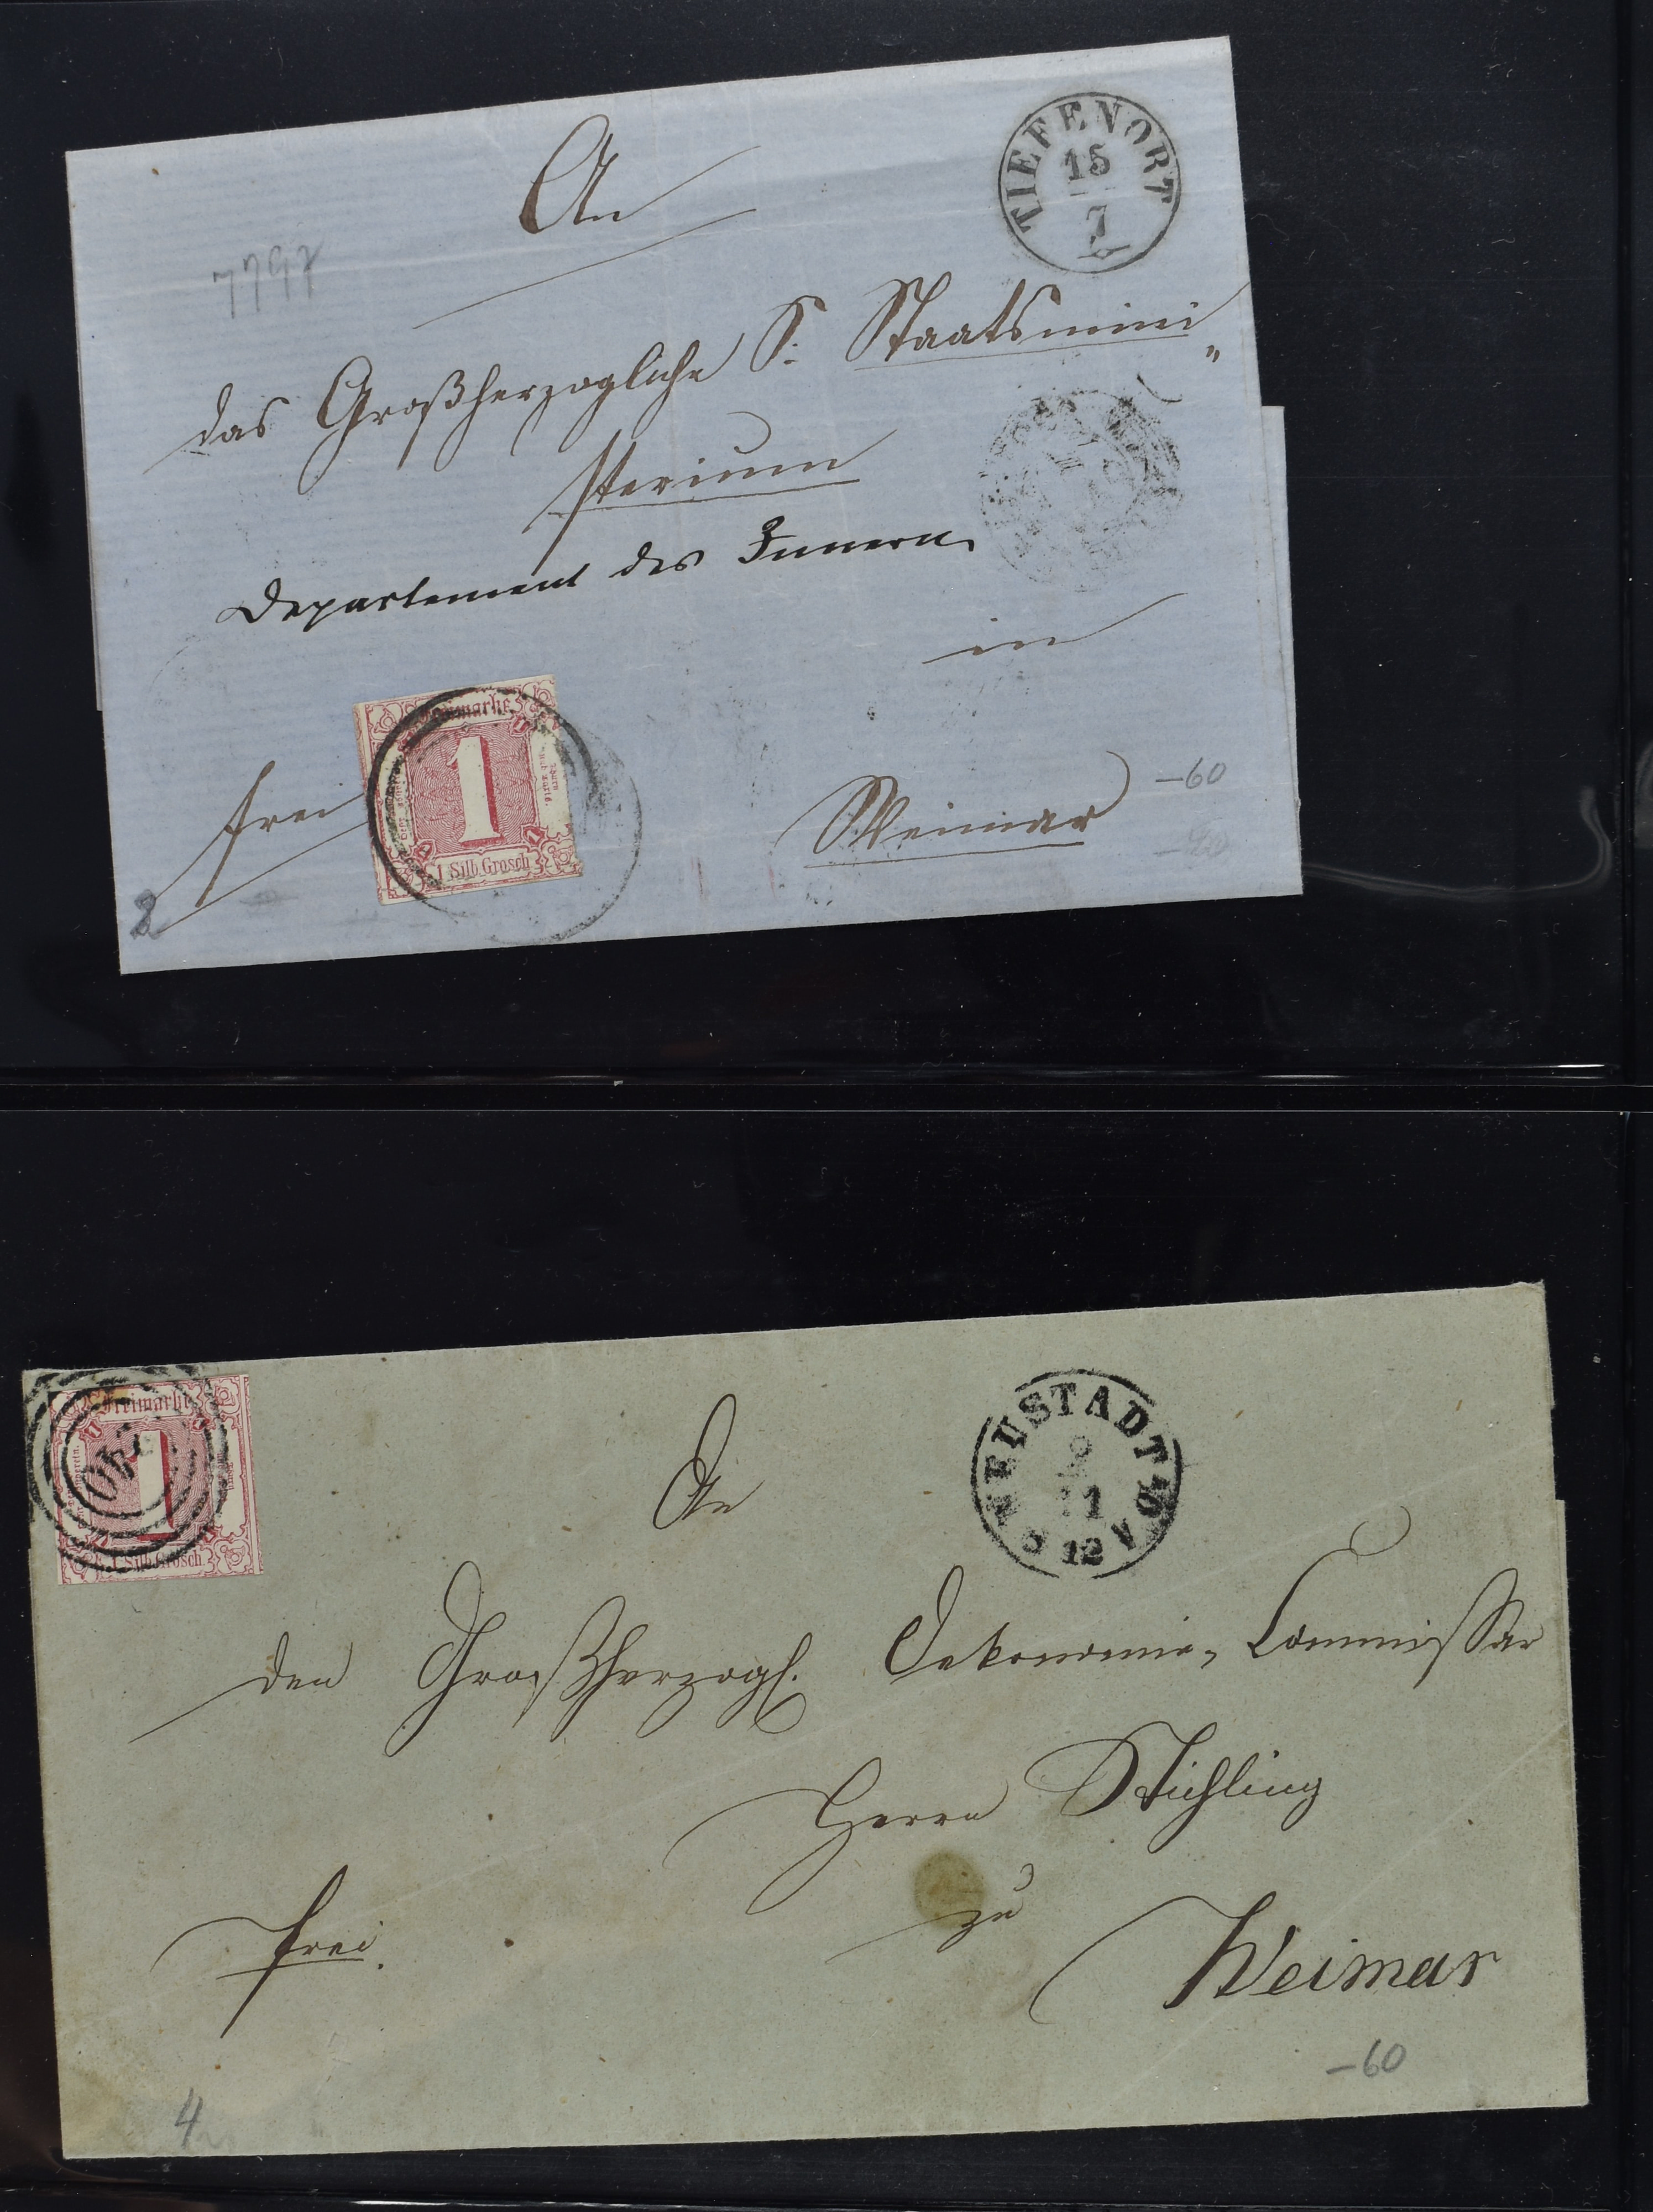 An
TIEFENORT
15
7
7797
das Großherzogliche S. Staatsmini
sterium
Departement des Innern
in
Freimarke
1
1 Silb. Grosch
frei
Weimar
-60
Freimarke
1
1 Silb. Grosch
240
An
NEUSTADT
2
11
12
den Großherzogl. Oekonomie-Commissar
Herrn Stichling
zu
frei.
Weimar
-60
4